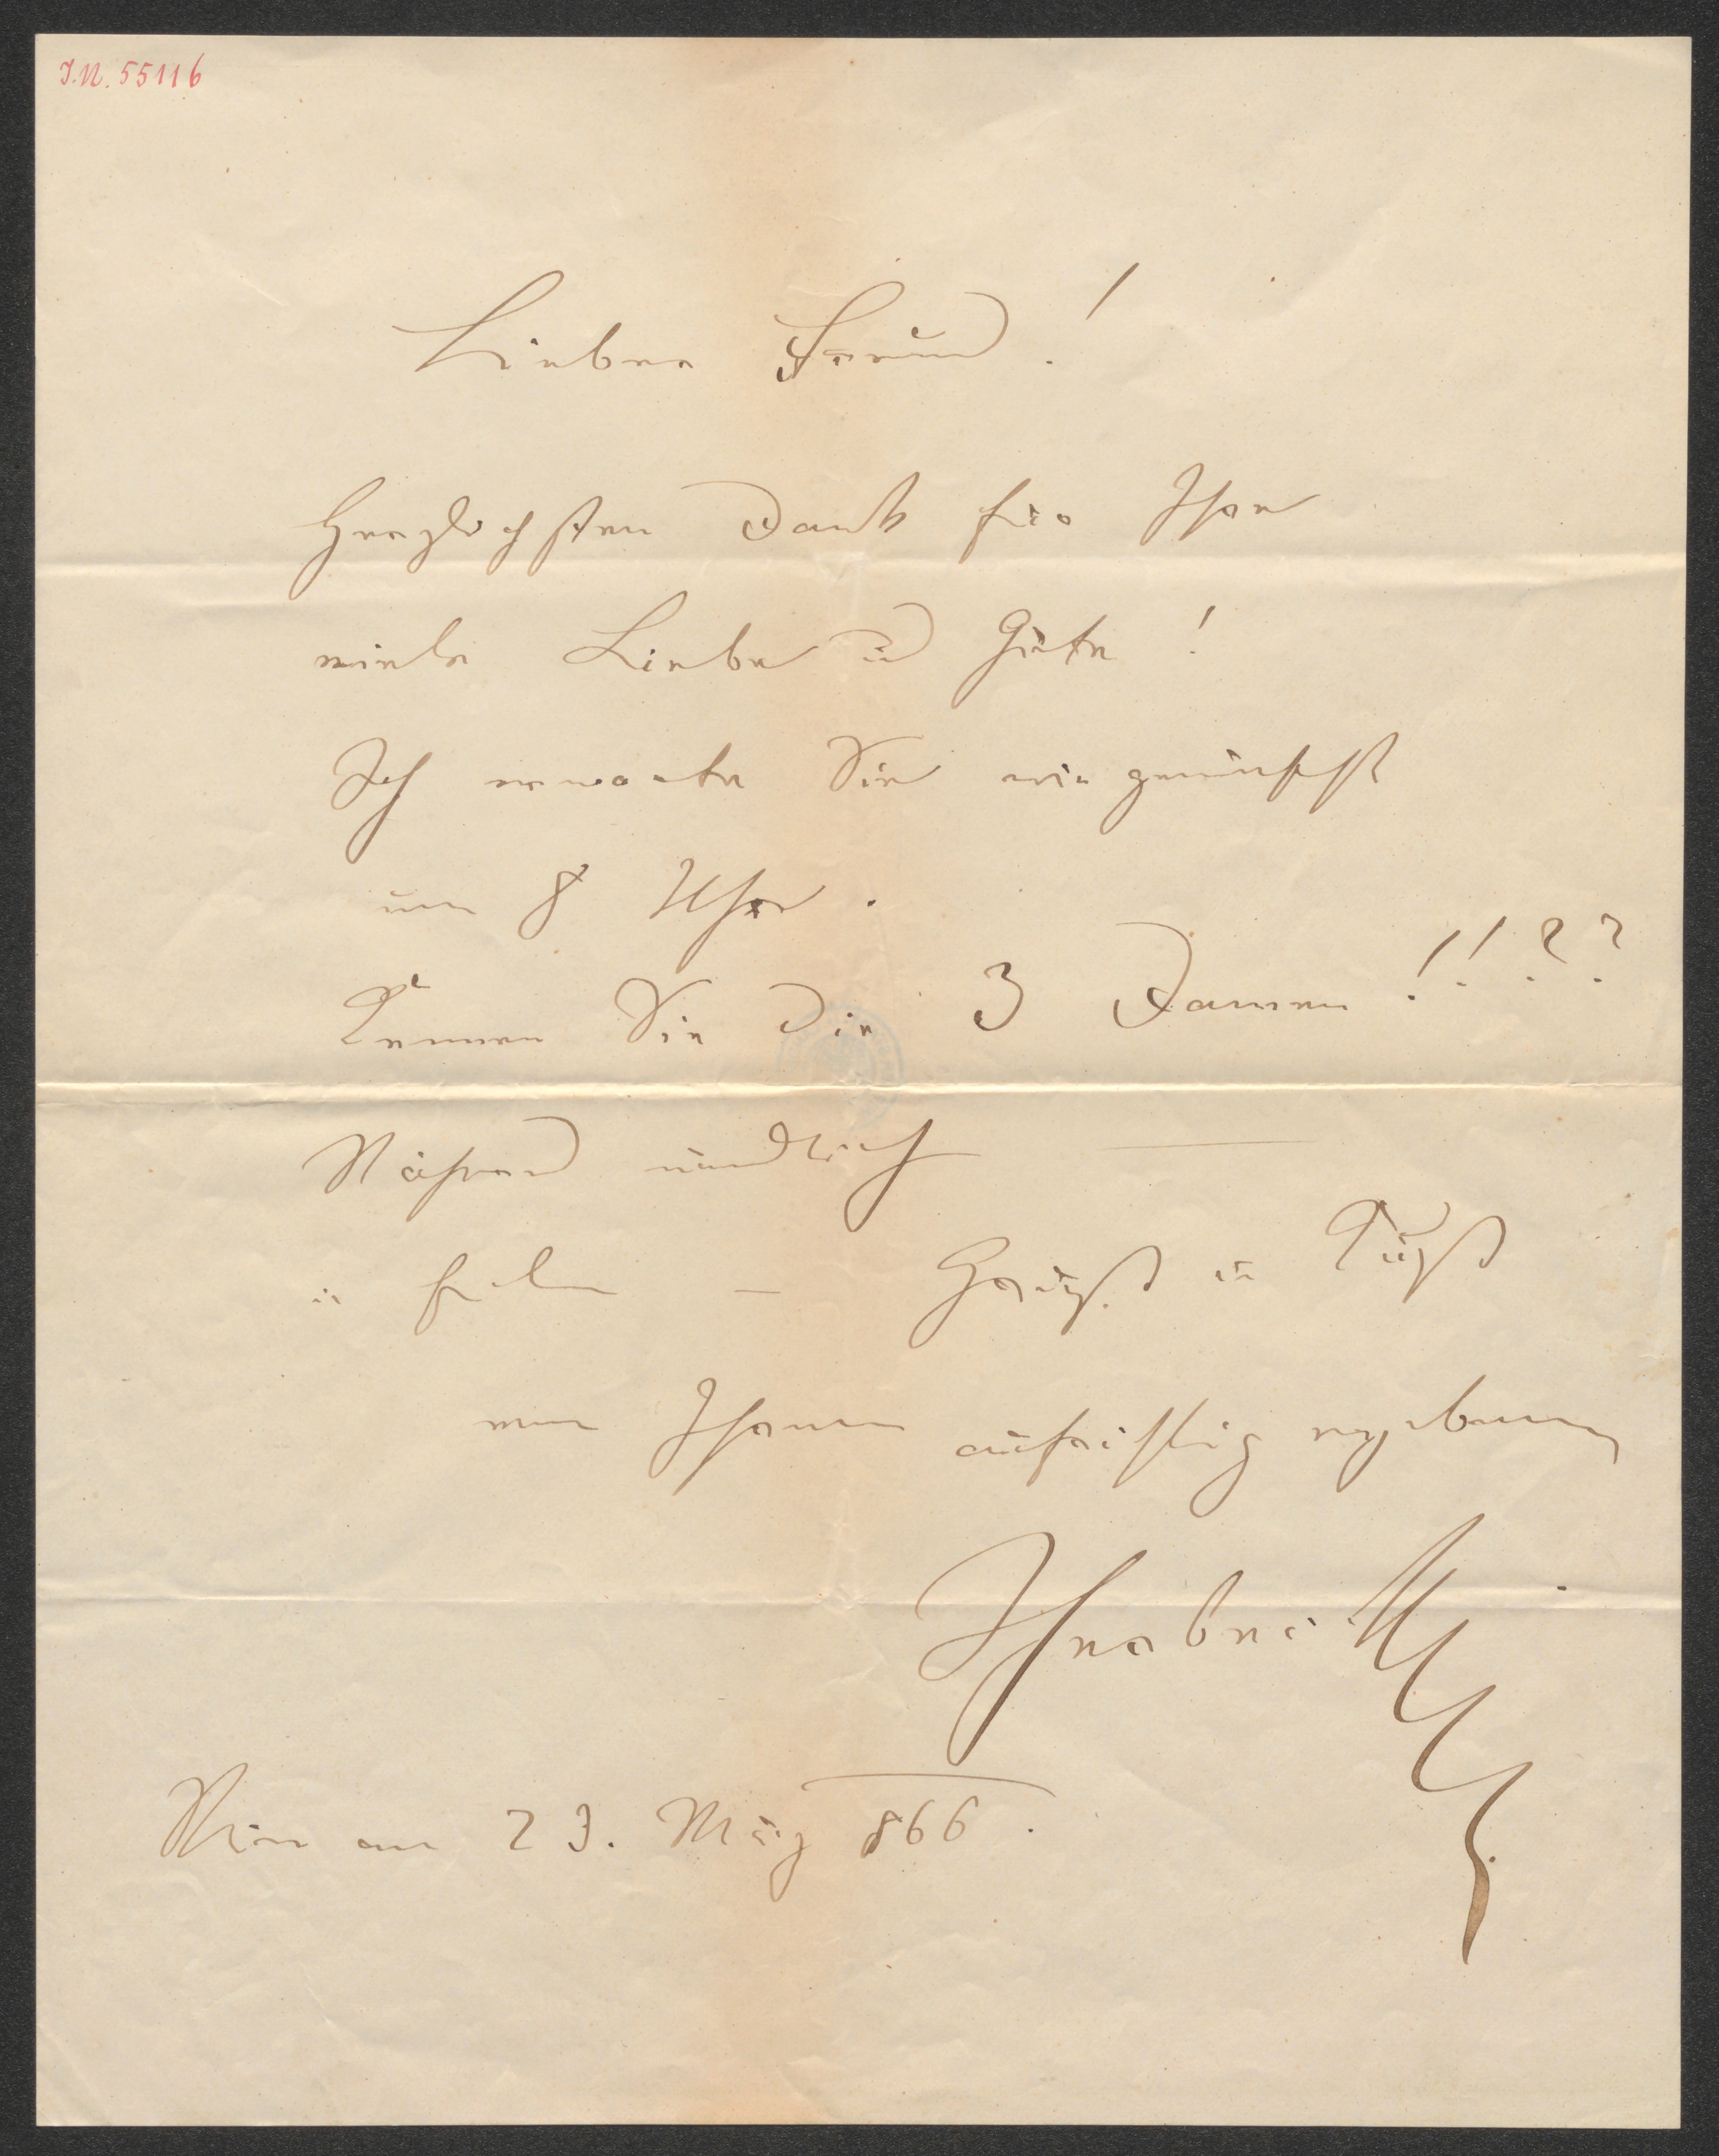 I.N. 55116
Lieber Freund!
Herzlichsten Dank für Ihre
viele Liebe u Güte!
Ich erwarte Sie wie gewünscht
um 8 Uhr.
Kennen Sie die 3 Damen!!??
Näheres mündlich —
u — Gruß u Kuß
von Ihrem aufrichtig ergebenen
Herbeck
Wien am 23. März 866.